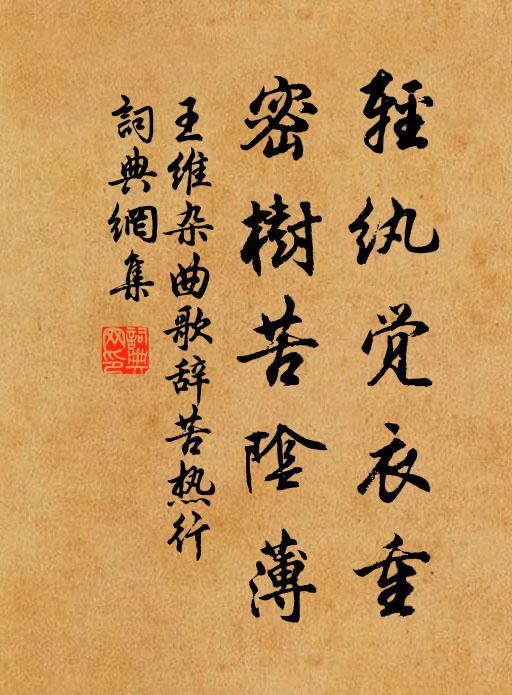 輕纨觉衣重
密樹苦陰薄
王维杂曲歌辞苦热行
詞典網集
詞典网印